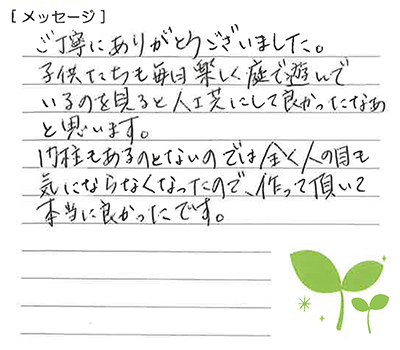 [メッセージ]
ご丁寧にありがとうございました。
子供たちも毎日楽しく庭で遊んで
いるのを見ると人工芝にして良かったなあ
と思います。
門柱もあるのとないのでは全く人の目も
気にならなくなったので、作って頂いて
本当に良かったです。